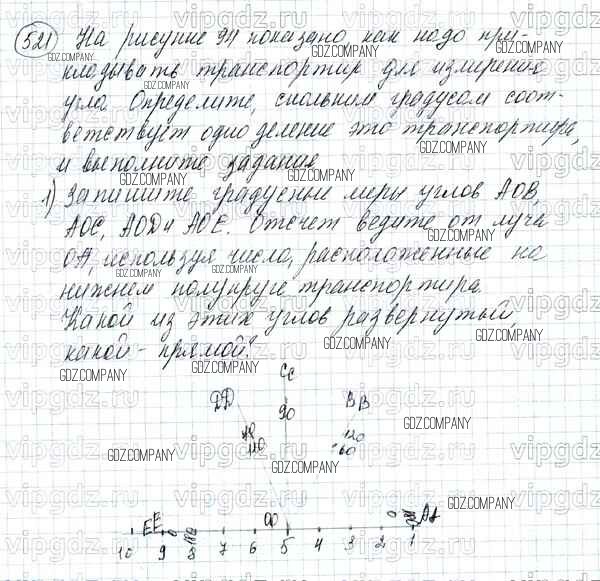 521 На рисунке 94 показано как надо при-
кладывать транспортир для измерения
угла Определите, скольким градусам соот-
ветствует одно деление это транспортира,
и выполните задания
1) Запишите градусные меры углов AOB,
AOC, AOD и AOE. Отсчет ведите от луча
OA, используя числа, расположенные на
нижнем полукруге транспортира.
Какой из этих углов развернутый,
какой - прямой?
Cc
DD BB
90
120
110 60
EE O A
10 9 8 7 6 5 4 3 2 1
GDZ.COMPANY
vipgdz.ru